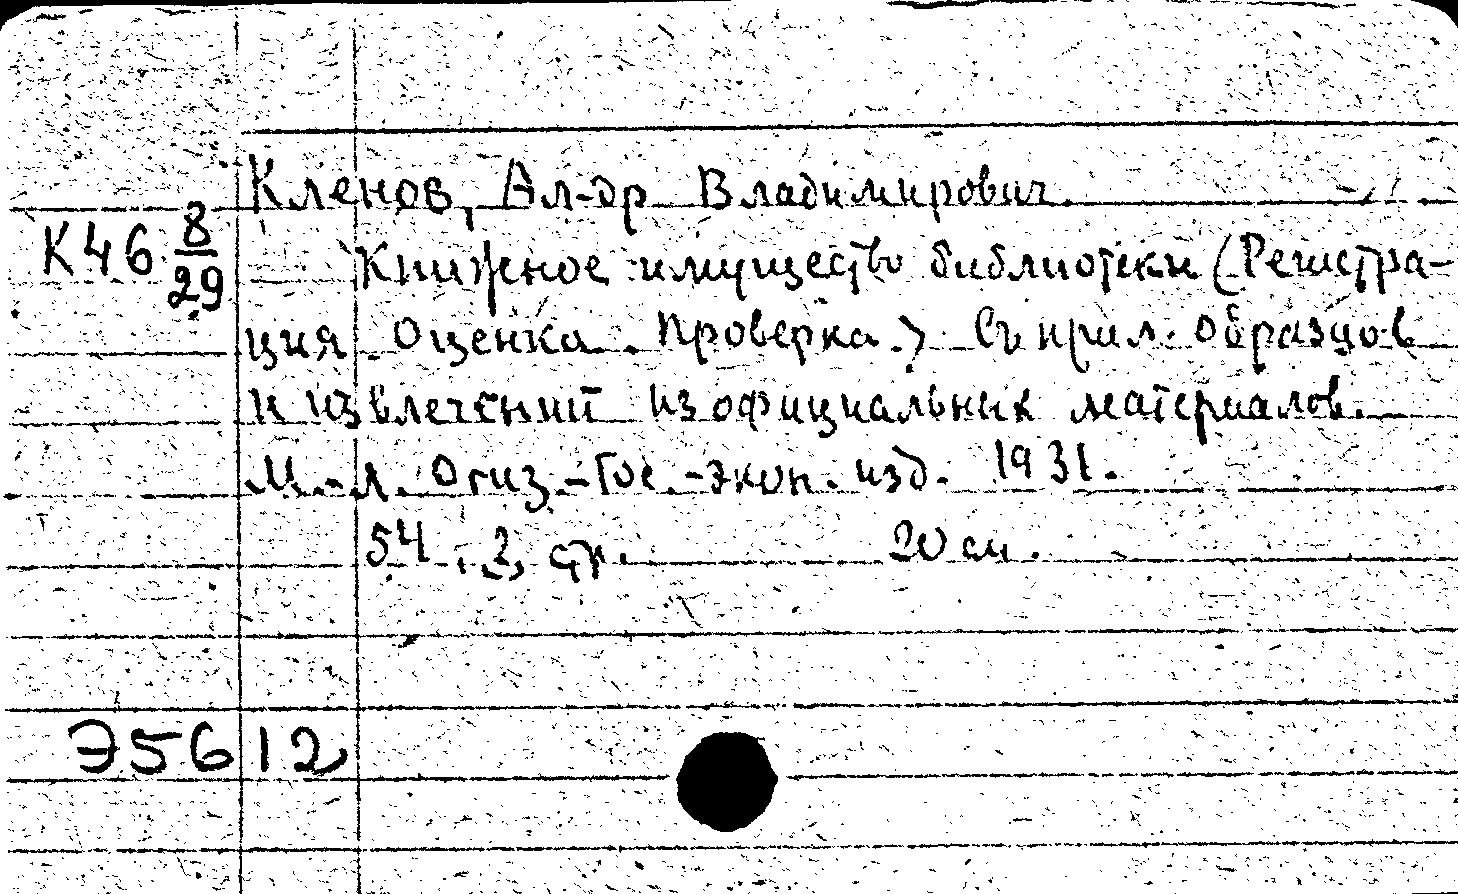 Кленов, Ал-др Владимирович.
К46 8/29
Книжное имущество библиотеки (Регистра-
ция. Оценка. Проверка.) Съ прил. образцов
и извлечений из официальных материалов.
М.-Л. Огиз.-Гос.-экон. изд. 1931.
54, 2, стр. 20 см.
Э5612